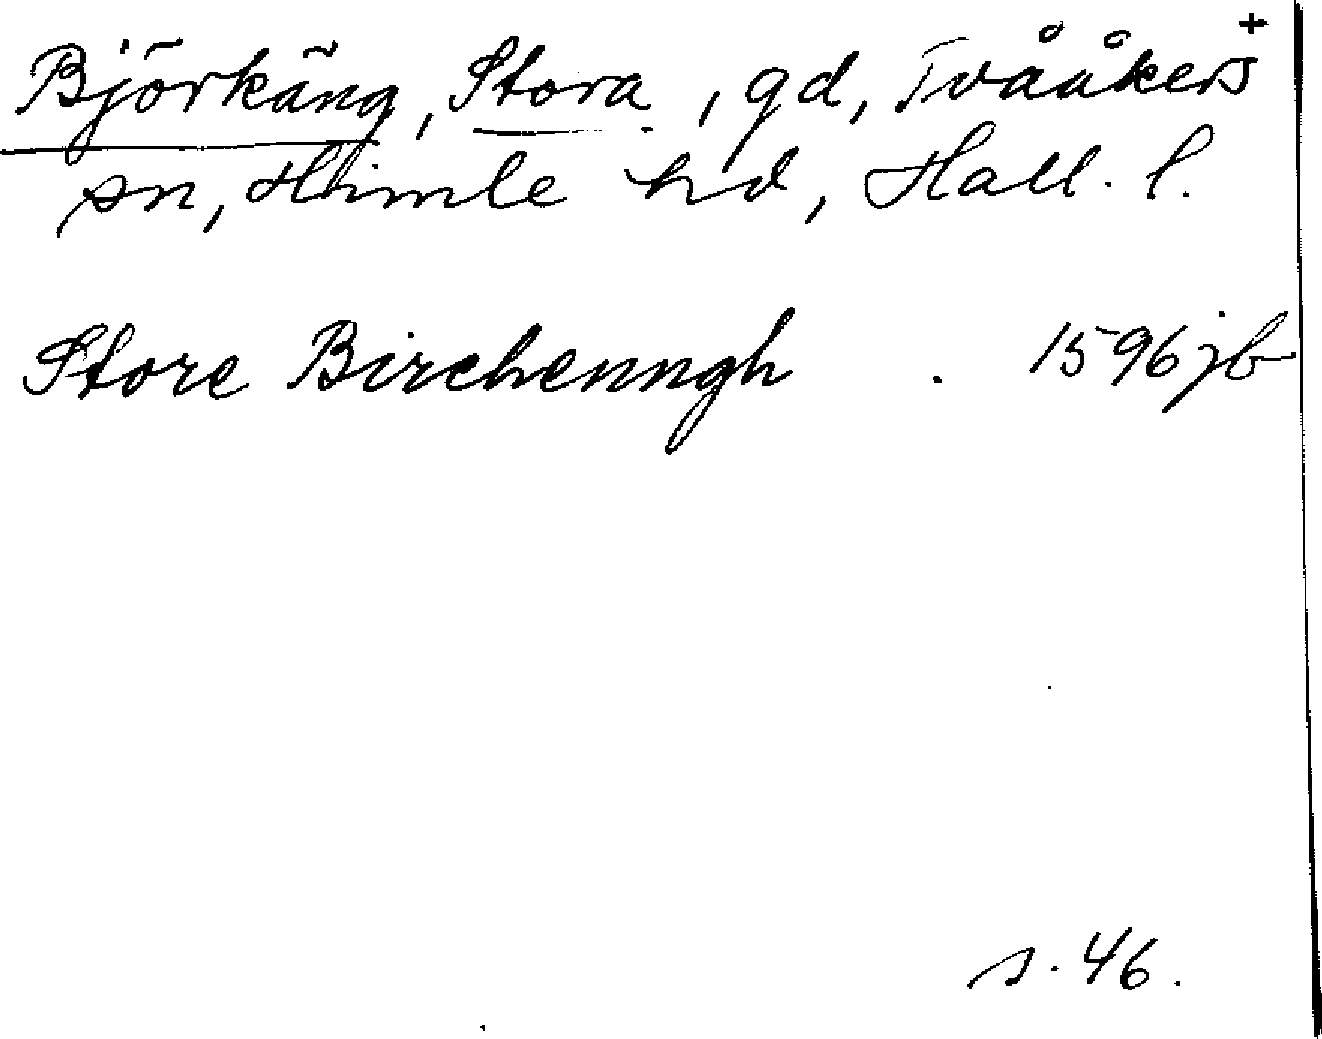 Björkäng, Stora, gd, Tvååkers +
sn, Himle hd, Hall. l.
Store Birchenngh . 1596 jb
s. 46.